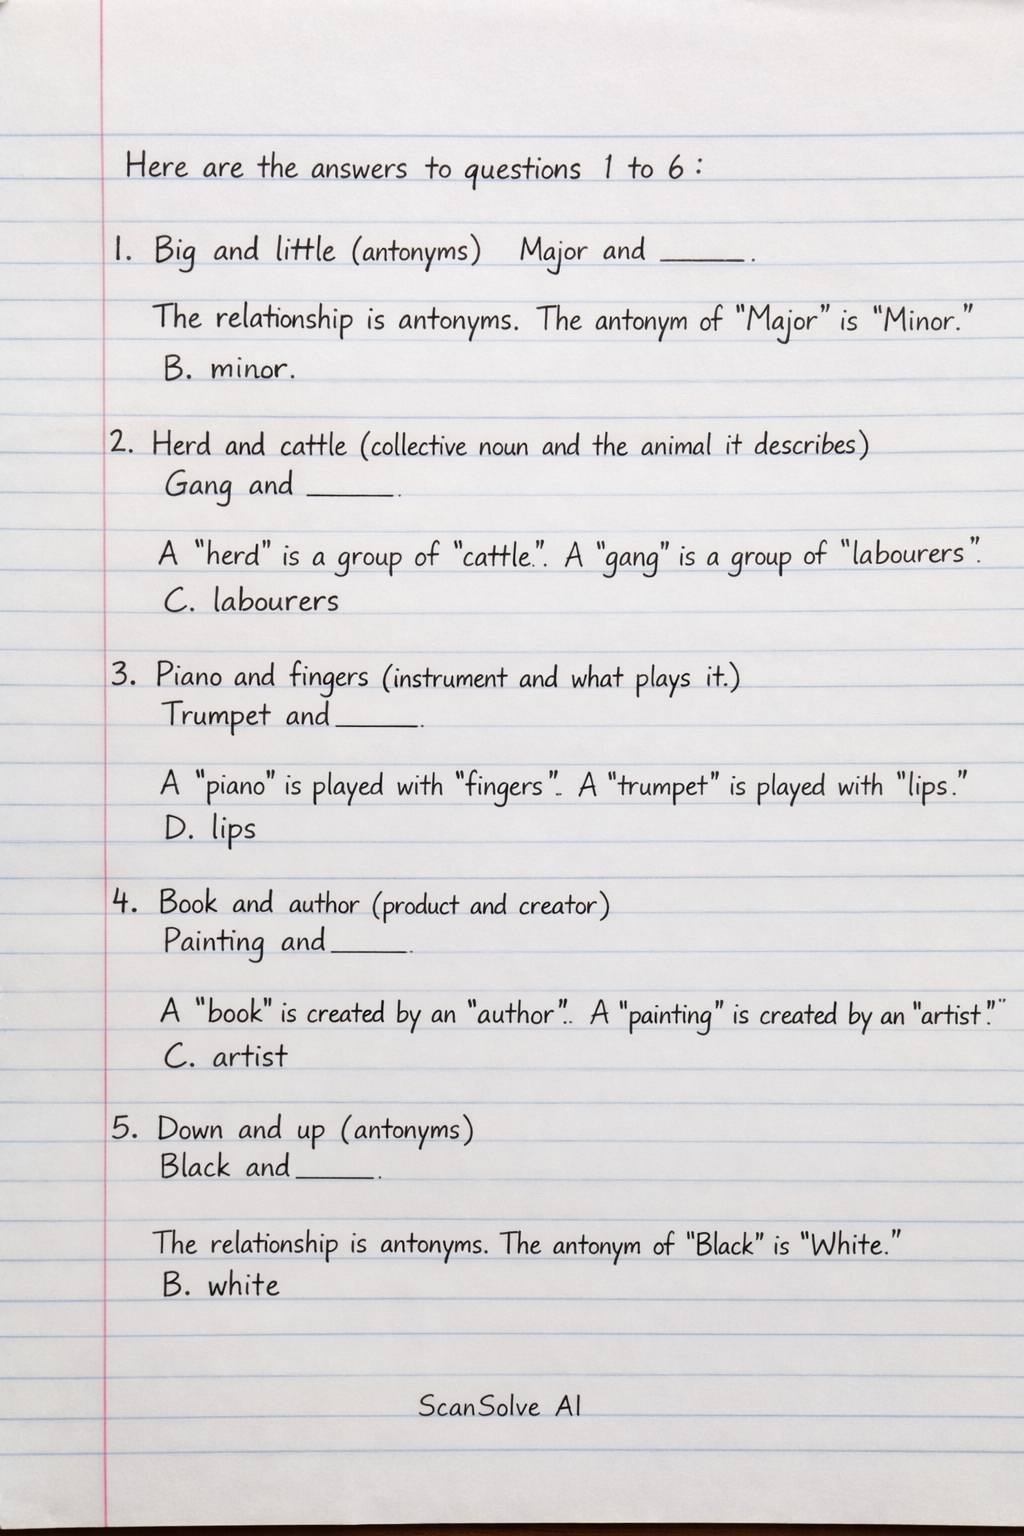 Here are the answers to questions 1 to 6:
1. Big and little (antonyms) Major and ______.
The relationship is antonyms. The antonym of "Major" is "Minor."
B. minor.
2. Herd and cattle (collective noun and the animal it describes)
Gang and ______.
A "herd" is a group of "cattle.". A "gang" is a group of "labourers".
C. labourers
3. Piano and fingers (instrument and what plays it.)
Trumpet and ______.
A "piano" is played with "fingers". A "trumpet" is played with "lips."
D. lips
4. Book and author (product and creator)
Painting and ______.
A "book" is created by an "author".. A "painting" is created by an "artist".""
C. artist
5. Down and up (antonyms)
Black and ______.
The relationship is antonyms. The antonym of "Black" is "White."
B. white
ScanSolve AI